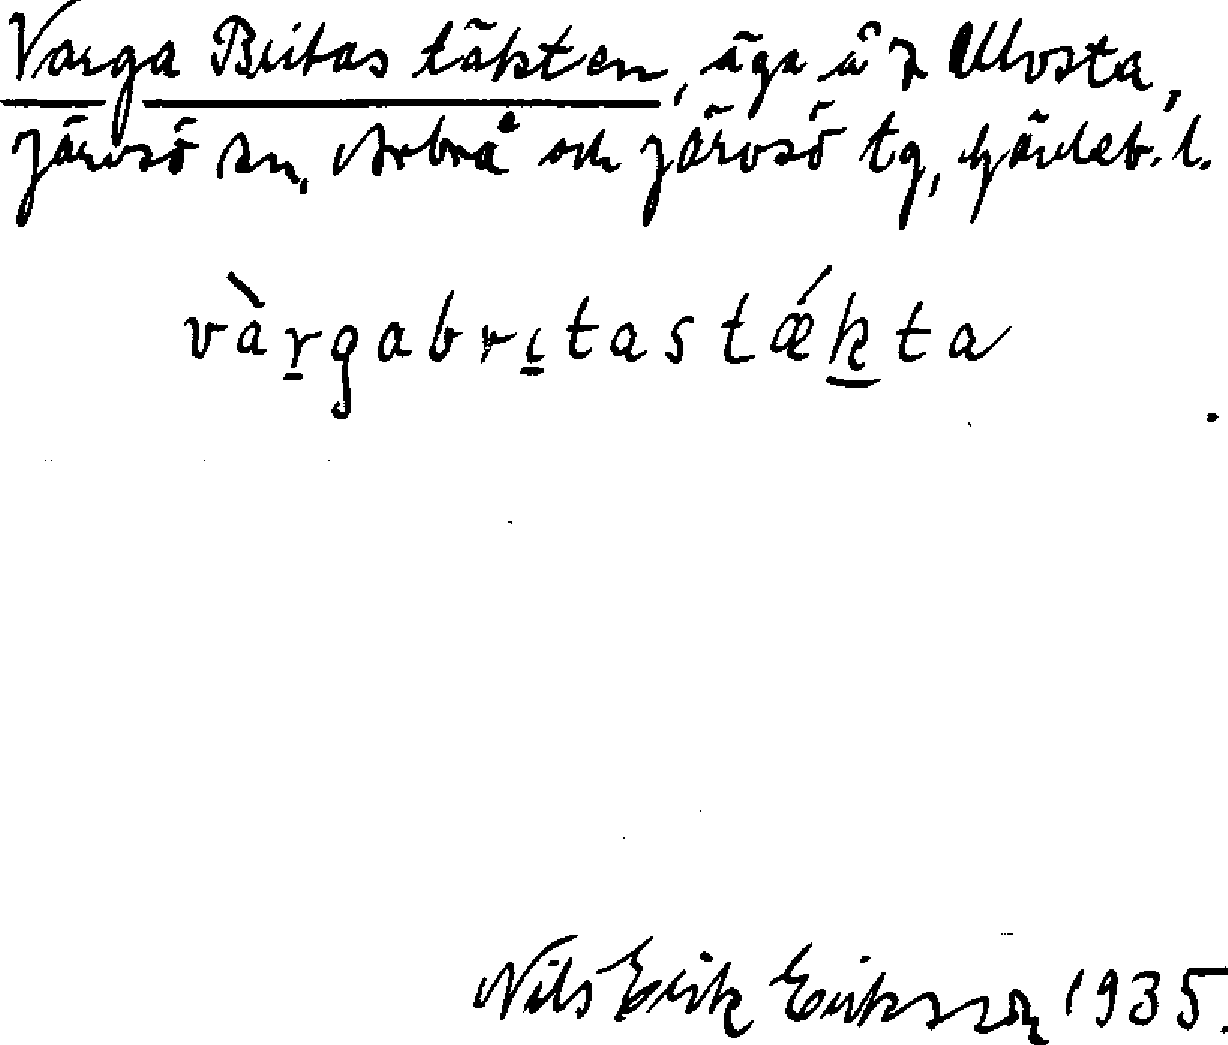 Varga Britas täkten, äga å 7 Ullvsta,
Järvsö sn, Arbrå och Järvsö tg, Gävleb. l.
vàrgabrιtastǽkta
Nils Erik Eriksson 1935.